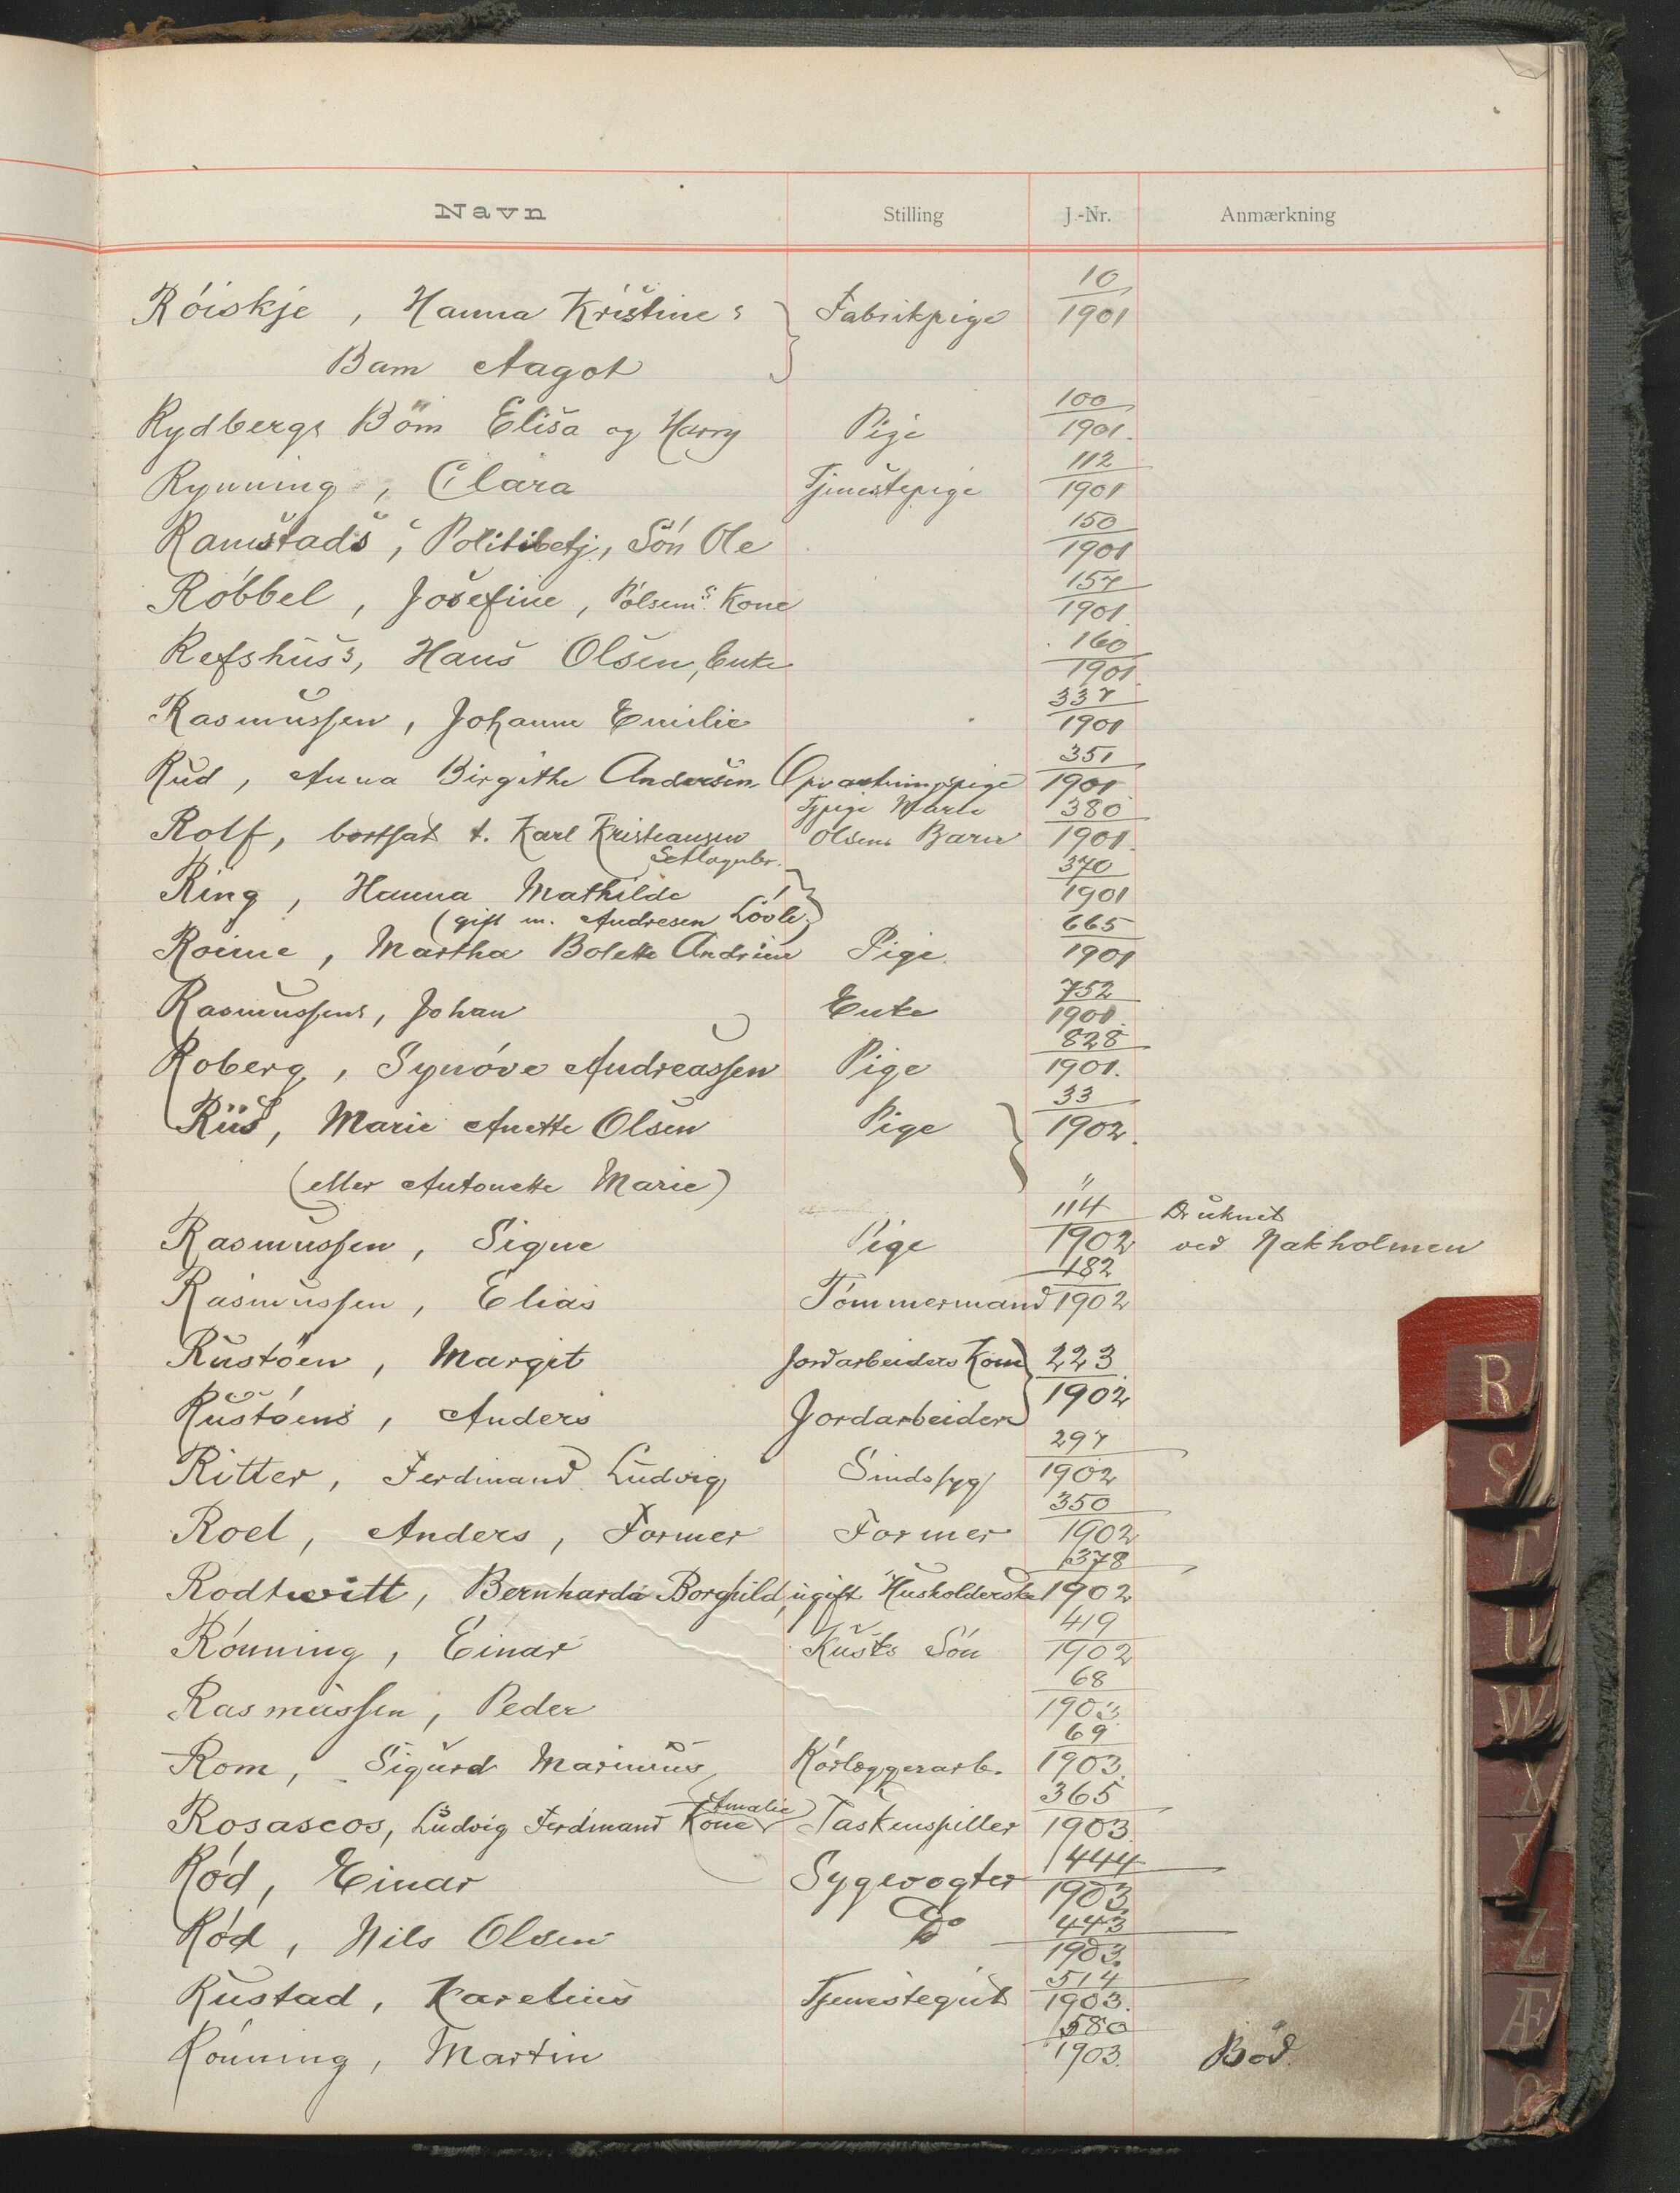 Navn Stilling J.-Nr. Anmærkning
Röiskje, Hanna Kristines Fabrikpige 10/1901
Barn Aagot
Rydbergs Börn Elisa og Harry Pige 100/1901
Rynning, Clara Tjenestepige 112/1901
Ramstads, Politibetj., Sön Ole 150/1901
Röbbel, Josefine, Pölsems. Kone 157/1901
Refshus's, Hans Olsen, Enke 160/1901
Rasmussen, Johanne Emilie 337/1901
Rud, Anna Birgithe Andersen Opvartningspige 351/1901
Rolf, bortsat t. Karl Kristiansen Tjpige Marie Olsens Barn 380/1901
Ring, Hanna Mathilde 370/1901
(gift m. Andresen Lövli)
Roime, Martha Bolette Andrine Pige 665/1901
Rasmussens, Johan Enke 752/1901
Roberg, Synöve Andreassen Pige 828/1901.
Riis, Marie Anette Olsen Pige 33/1902.
(eller Antonette Marie) "
Rasmussen, Signe Pige 114/1902 Druknet ved Nakholmen
Rasmussen, Elias Tömmermand 182/1902
Rustöen, Margit Jordarbeiders Kone 223/1902
Rustöens, Anders Jordarbeider
Ritter, Ferdinand Ludvig Sindssyg 297/1902
Roel, Anders, Former Former 350/1902
Rodtwitt, Bernharda Borghild, ugift Husholderske 378/1902
Rönning, Einar Kusks Sön 419/1902
Rasmussen, Peder 68/1903
Rom, Sigurd Marinius Rörlæggerarb. 69/1903.
Rosascos, Ludvig Ferdinand Kone Amalie Taskenspiller 365/1903.
Röd, Einar Sygevogter 444/1903
Röd, Nils Olsen Do 443/1903.
Rustad, Karelius Tjenestegut 514/1903.
Rönning, Martin 580/1903. Böd.
R
S
T
U
W
X
Y
Z
Æ
Ø